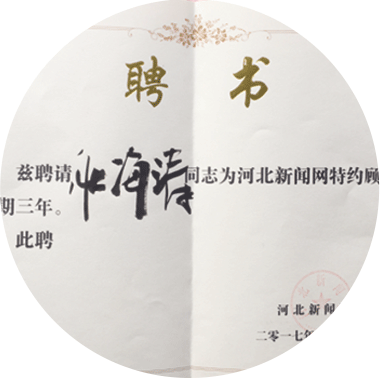 聘书
兹聘请 海涛同志为河北新闻网特约顾
期三年。
此聘
河北新闻
二零一七年